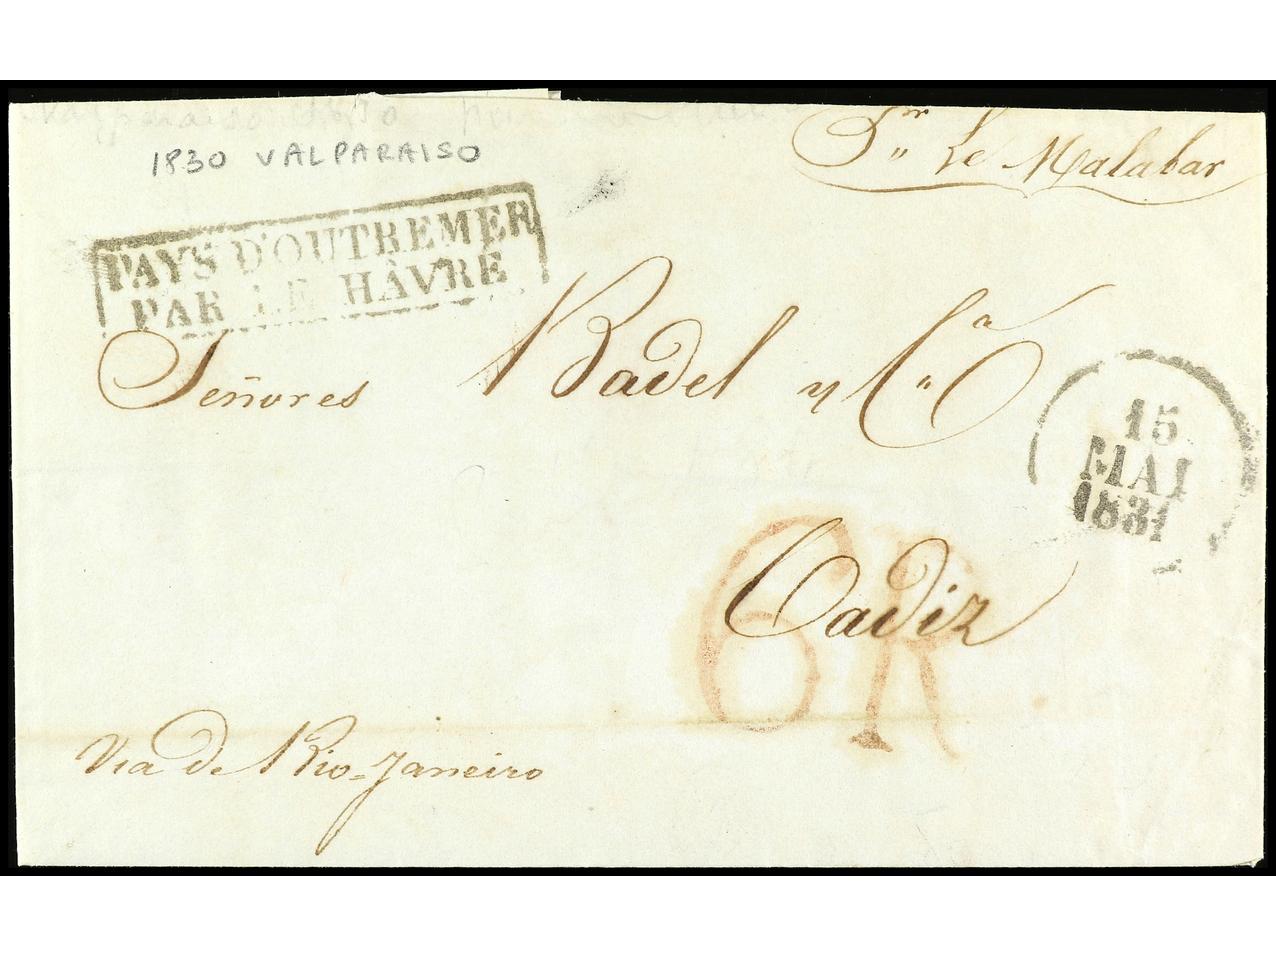 Valparaiso 1830
1830 VALPARAISO
Pr. Le Malabar
PAYS D'OUTREMER
PAR LE HÂVRE
Señores Badel y Ca
15
MAI
1831
6R
Cadiz
Via de Rio=Janeiro